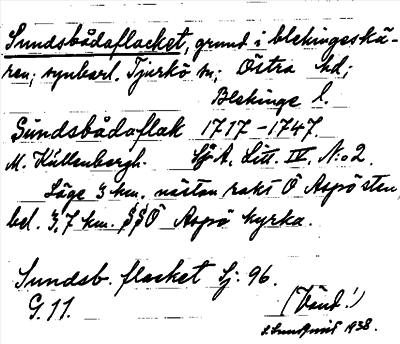 Sundsbådaflacket, grund i blekingeskä-
ren; synbarl. Tjurkö sn; Östra hd;
Blekinge l.
Sundsbådaflak 1717-1747.
M. Källenbergh. Sj A. Litt. IV, N:o 2.
Läge 3 km. nästan rakt Ö Aspösten,
bel. 3,7 km. Ö Aspö kyrka.
Sundsb. flacket Sj: 96.
G. 11. (Vänd!)
1938.